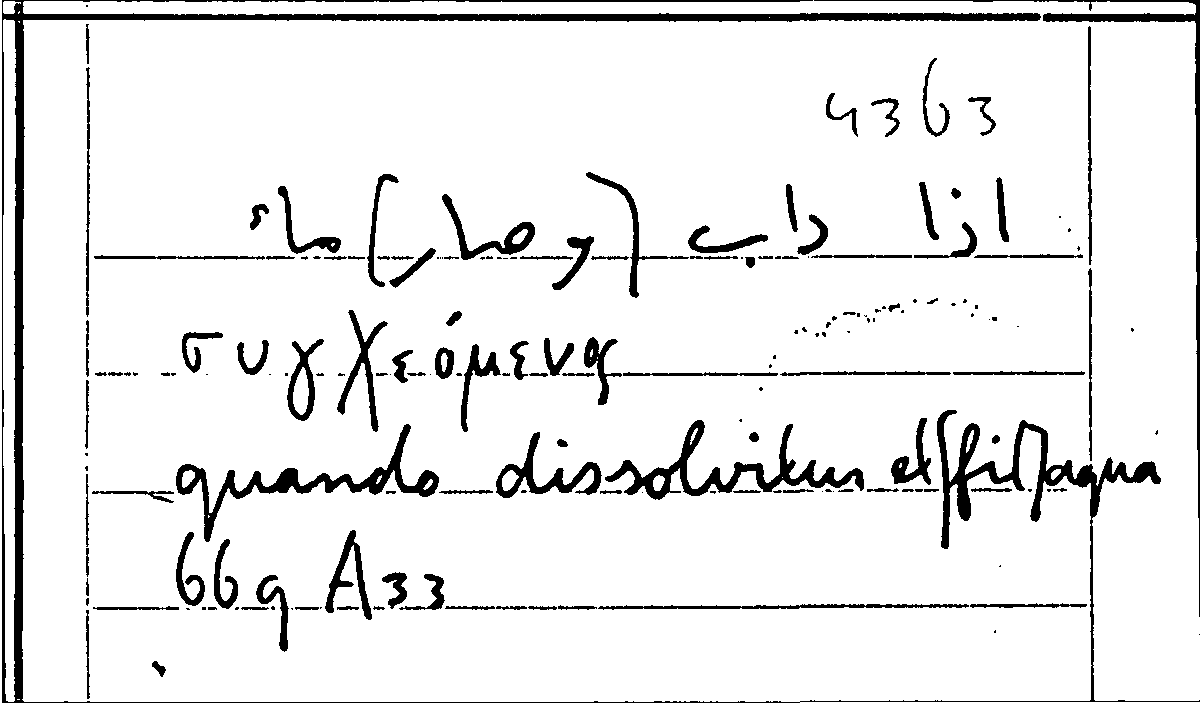 4363
اذا داب [وصار] ماء
συγχεόμενος
quando dissolvitur et [fit] aqua
669 A33